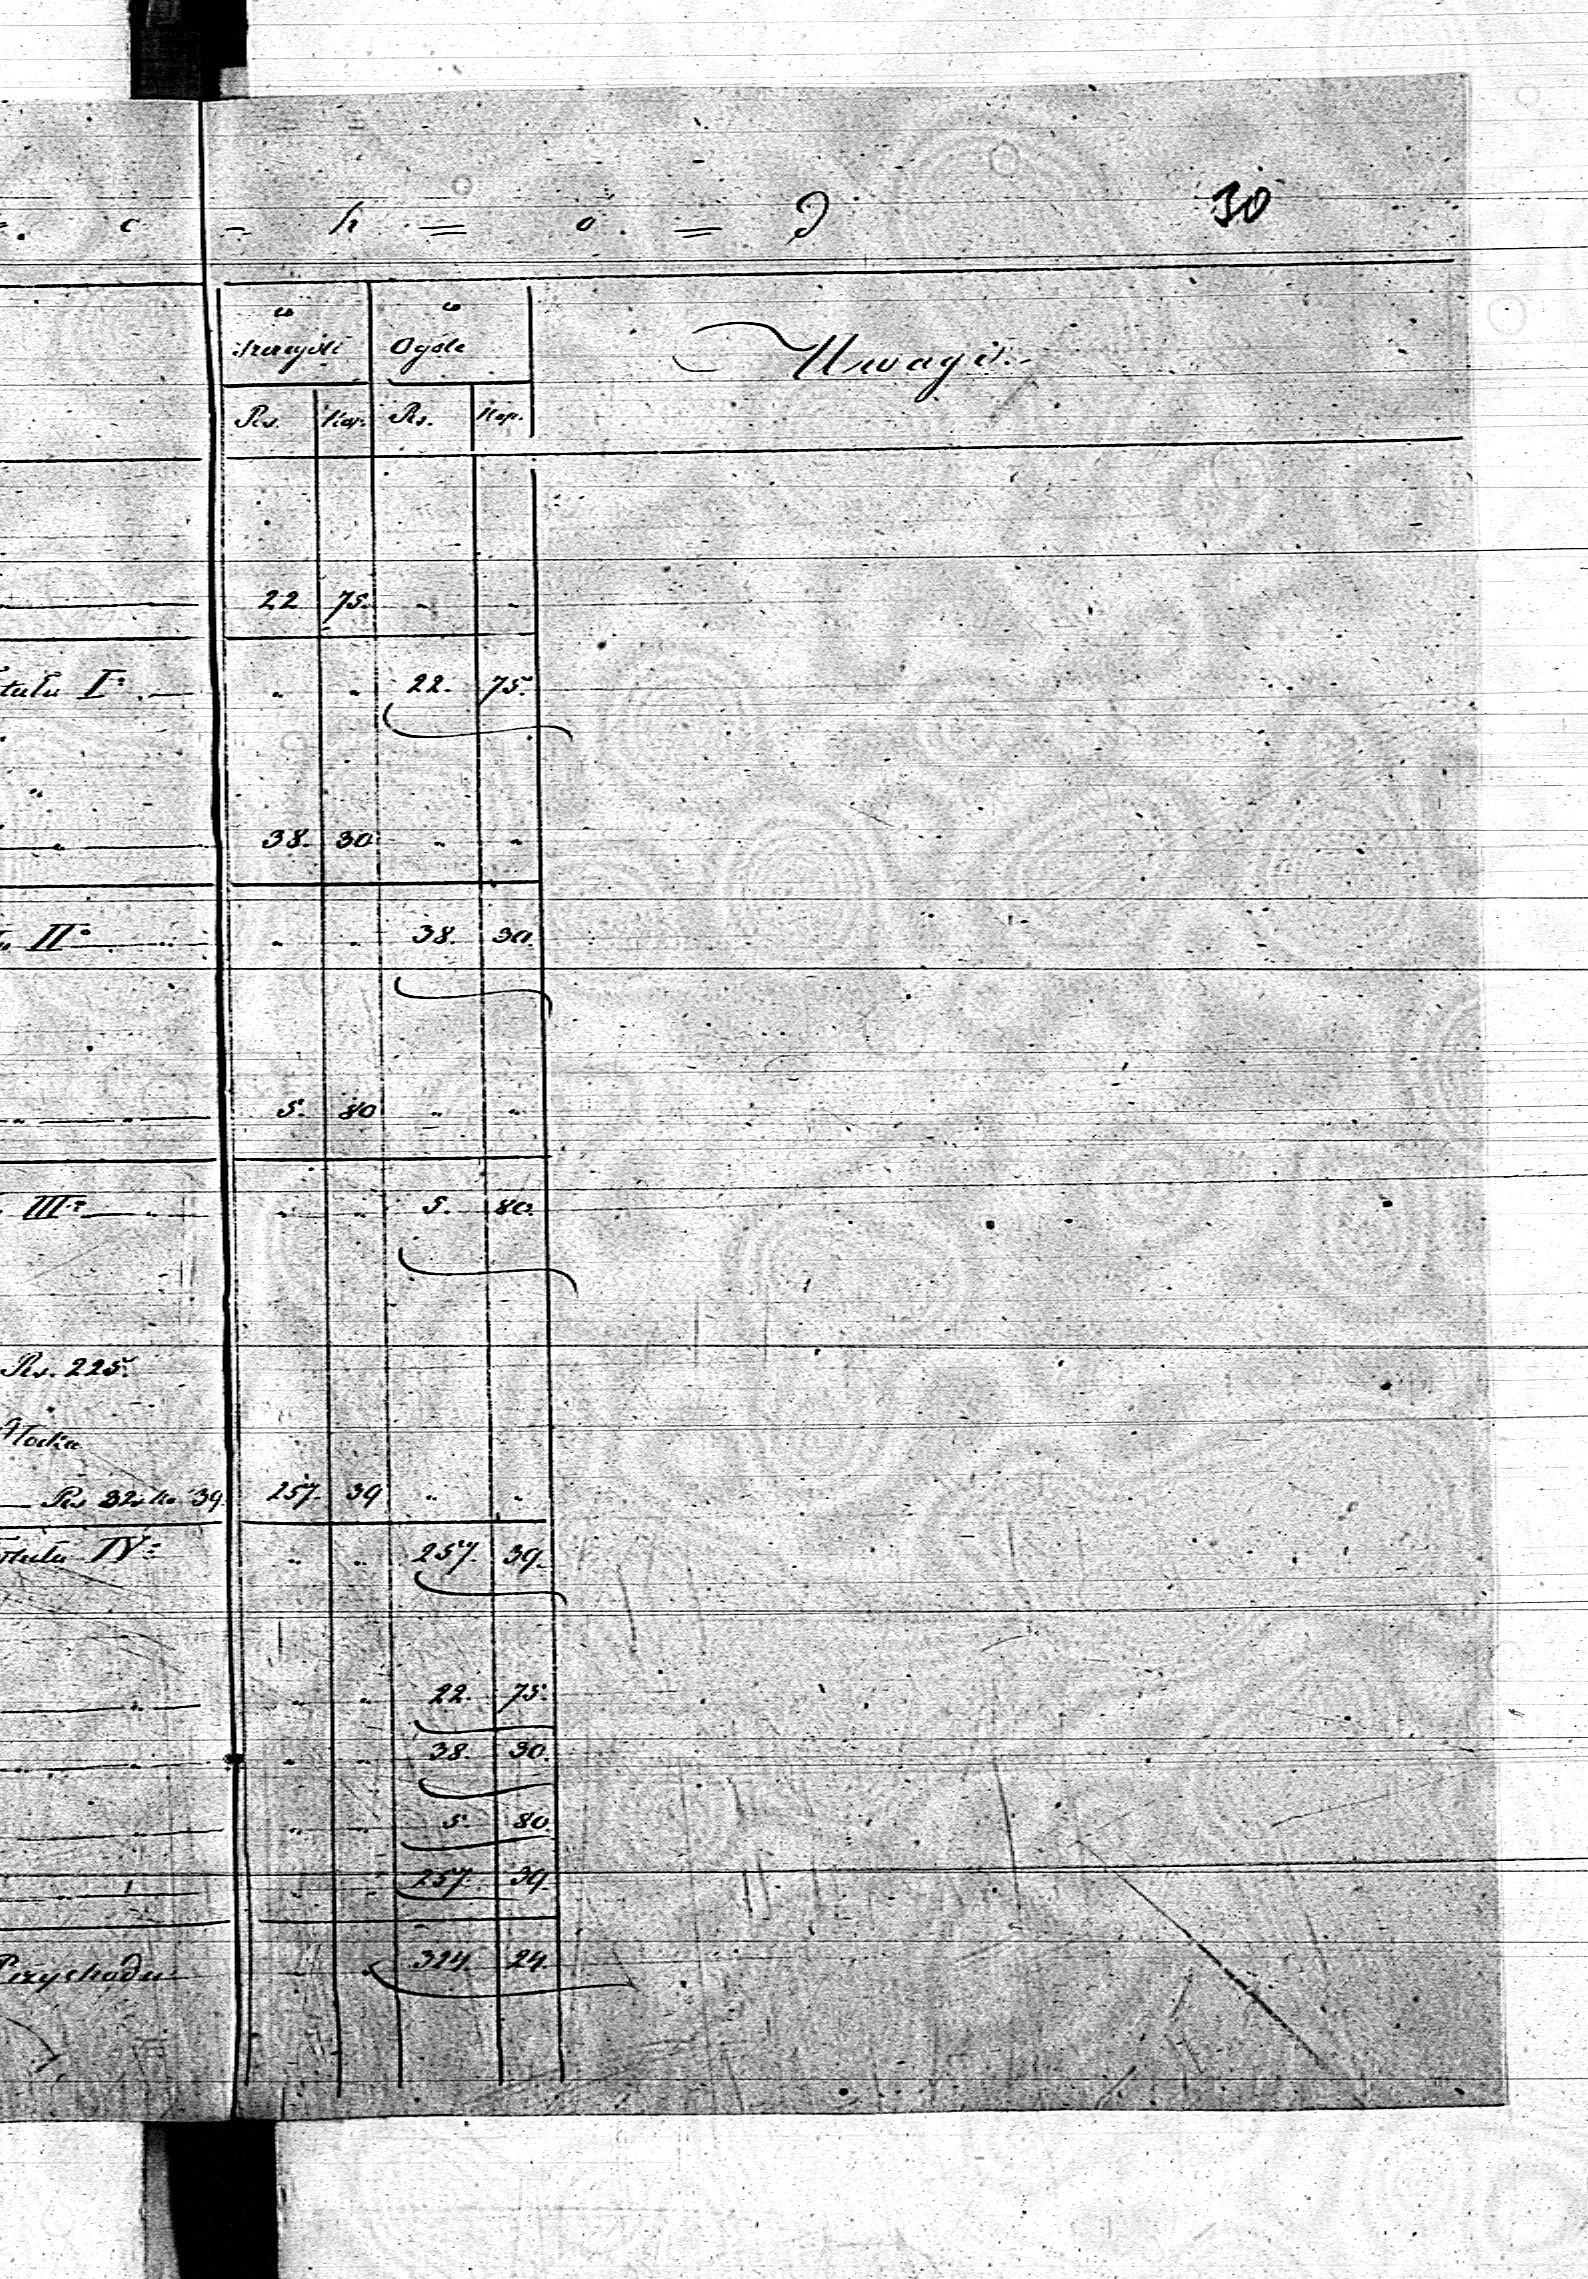 c - h = o. = d 30
w w
szczególe Ogóle Uwagi.
Rs. Kop. Rs. Kop.
22 75. " "
tułu I° " " 22. 75.
38. 30 " "
II° " " 38. 30.
5. 80 " "
III° " " 5. 80.
Rs. 225.
Rs 32 k. 39 257. 39 " "
tułu IV° " " 257. 39.
" " 22. 75.
" " 38. 30.
" " 5. 80.
" " 257. 39.
Przychodu 324. 24.